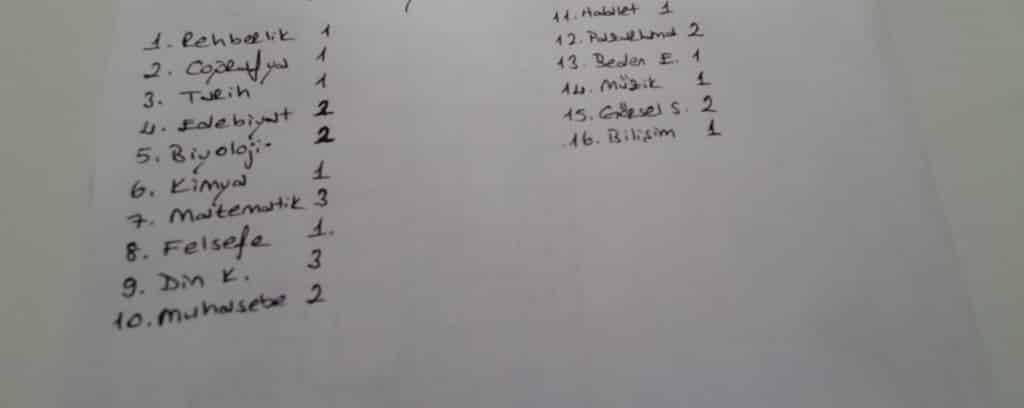 1. Rehberlik 1
2. Coğrafya 1
3. Tarih 1
4. Edebiyat 2
5. Biyoloji 2
6. Kimya 1
7. Matematik 3
8. Felsefe 1.
9. Din K. 3
10. Muhasebe 2
11. Adalet 1
12. Pazarlama 2
13. Beden E. 1
14. Müzik 1
15. Görsel S. 2
16. Bilişim 1